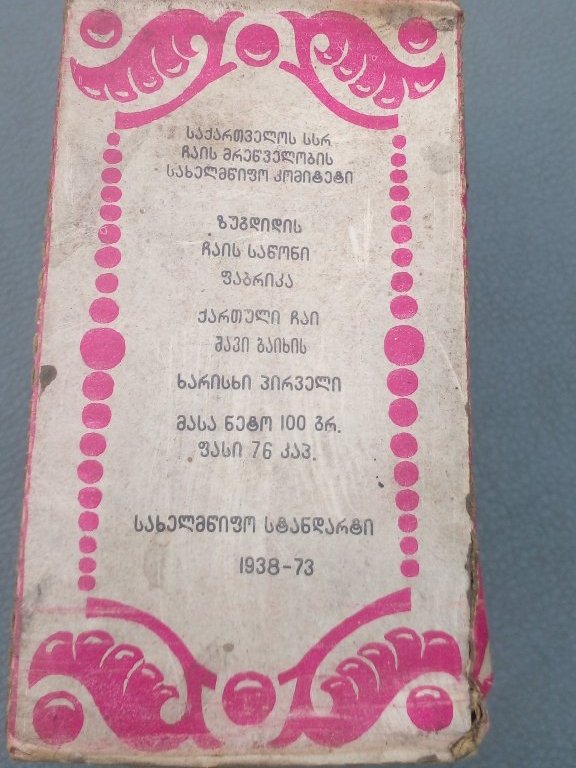 საქართველოს სსრ
ჩაის მრეწველობის
სახელმწიფო კომიტეტი
ზუგდიდის
ჩაის საწონი
ფაბრიკა
ქართული ჩაი
შავი ბაიხის
ხარისხი პირველი
მასა ნეტო 100 გრ.
ფასი 76 კაპ.
სახელმწიფო სტანდარტი
1938-73